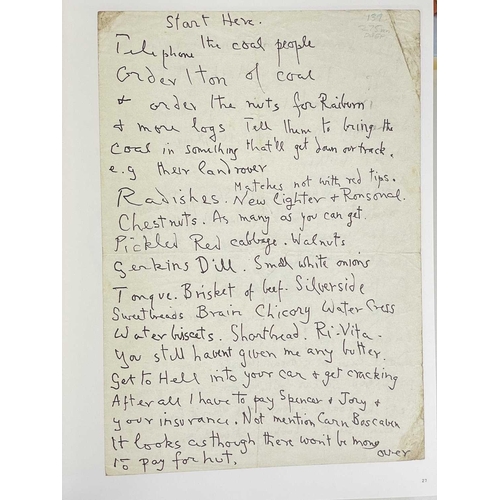 Start Here.
Telephone the coal people
Order 1 ton of coal
& order the nuts for Raiburn
& more logs Tell them to bring the
coal in something that'll get down our track.
e.g their landrover
Matches not with red tips.
Radishes. New lighter & Ronsonal.
Chestnuts. As many as you can get.
Pickled Red cabbage. Walnuts
Gerkins Dill. Small white onions
Tongue. Brisket of beef. Silverside
Sweetbreads Brain Chicory Water Cress
Water buscets. Shortbread. Ri-Vita.
You still havent given me any butter.
Get to Hell into your car & get cracking
After all I have to pay Spencer & Jory &
your insurance. Not mention Carn Boscaven
It looks as though there won't be money
to pay for hut.
over
21